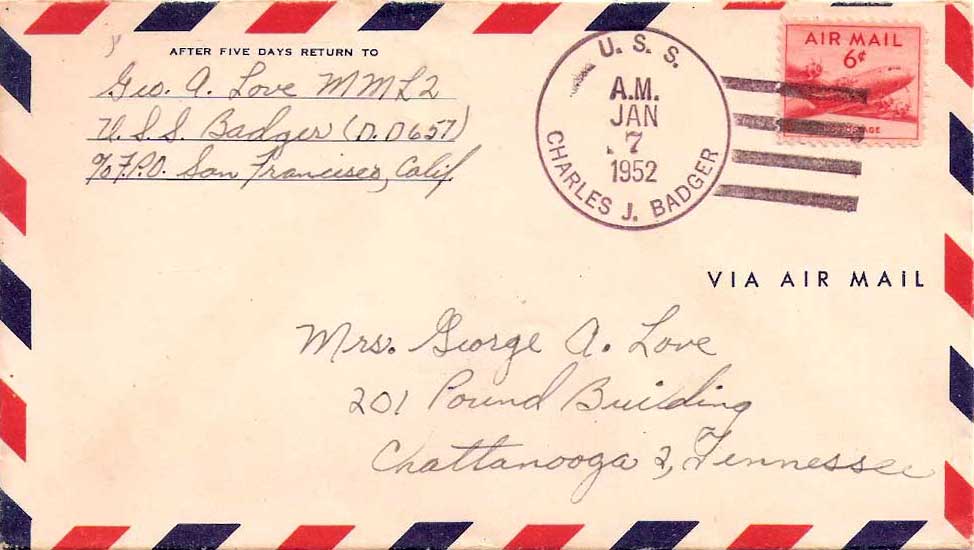 AFTER FIVE DAYS RETURN TO
Geo. A. Love MML2
U.S.S. Badger (D.D657)
% F.P.O. San Francisco, Calif.
U. S. S.
A.M.
JAN
7
1952
CHARLES J. BADGER
AIR MAIL
6¢
POSTAGE
VIA AIR MAIL
Mrs. George A. Love
201 Pound Building
Chattanooga 2, Tennessee